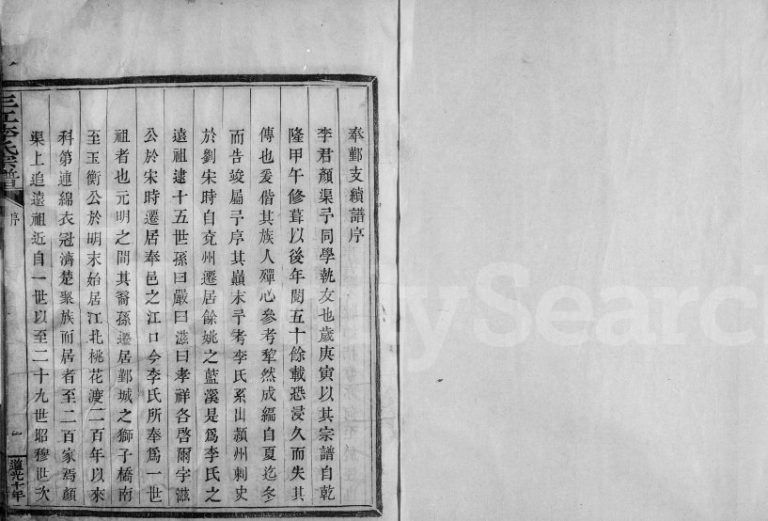 奉鄞支續譜序
李君顏渠予同學執友也歲庚寅以其宗譜自乾
隆甲午修葺以後年閱五十餘載恐浸久而失其
傳也爰偕其族人殫心參考犂然成編自夏迄冬
而告竣屬予序其巔末予考李氏系出潁州刺史
於劉宋時自兗州遷居餘姚之藍溪是爲李氏之
遠祖逮十五世孫曰嚴曰滋曰孝祥各啓爾宇滋
公於宋時遷居奉邑之江口今李氏所奉爲一世
祖者也元明之間其裔孫遷居鄞城之獅子橋南
至玉衡公於明末始居江北桃花渡二百年以來
科第連綿衣冠濟楚聚族而居者至二百家焉顏
渠上追遠祖近自一世以至二十九世昭穆世次
三江李氏宗譜
序
一
道光十年
tySearch